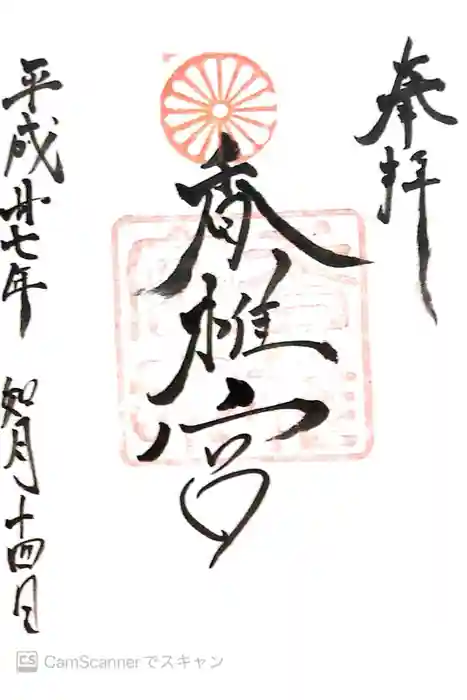 奉拝
香椎宮
平成廿七年 如月十四日
CS CamScannerでスキャン